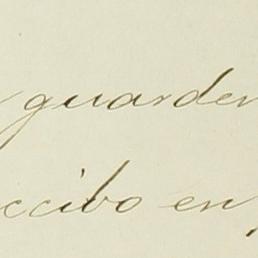 guarden
ccibo en,